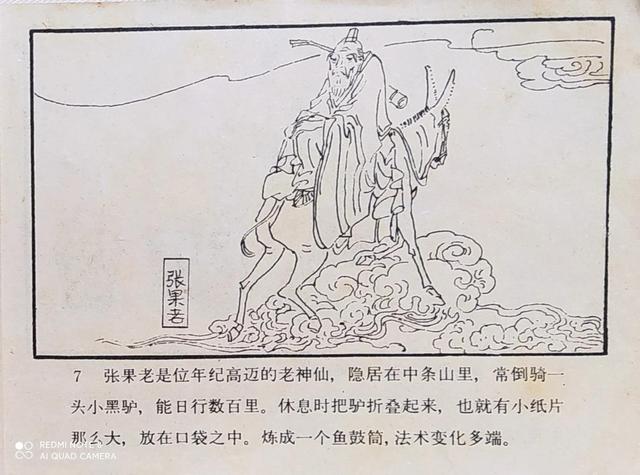 张果老
7 张果老是位年纪高迈的老神仙，隐居在中条山里，常倒骑一
头小黑驴，能日行数百里。休息时把驴折叠起来，也就有小纸片
那么大，放在口袋之中。炼成一个鱼鼓筒，法术变化多端。
REDMI NOTE 9
AI QUAD CAMERA